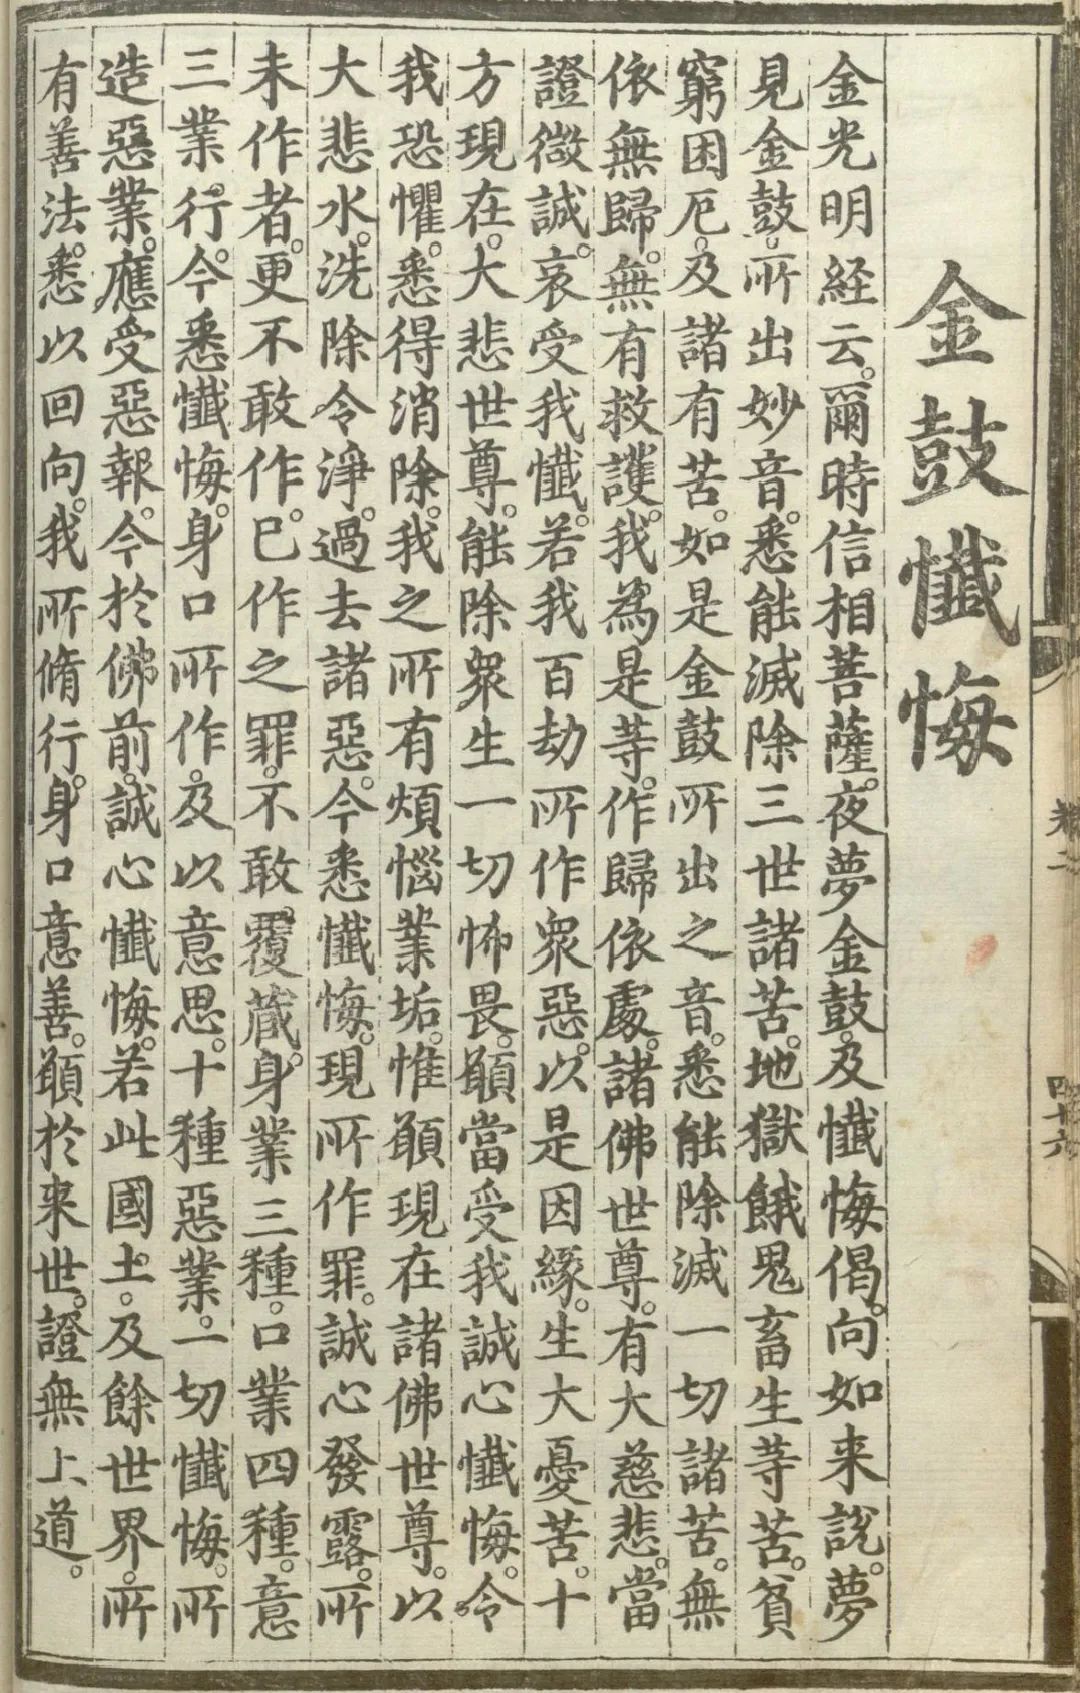 金鼓懺悔
金光明経云。爾時信相菩薩。夜夢金鼓。及懺悔偈。向如来說。夢
見金鼓。所出妙音。悉能滅除三世諸苦。地獄餓鬼畜生等苦。貧
窮困厄。及諸有苦。如是金鼓所出之音。悉能除滅一切諸苦。無
依無歸。無有救護。我為是等。作歸依處。諸佛世尊。有大慈悲。當
證微誠。哀受我懺。若我百劫所作眾惡。以是因緣。生大憂苦。十
方現在。大悲世尊。能除眾生一切怖畏。願當受我誠心懺悔。令
我恐懼。悉得消除。我之所有煩惱業垢。惟願現在諸佛世尊。以
大悲水。洗除令淨。過去諸惡。今悉懺悔。現所作罪。誠心發露。所
未作者。更不敢作。已作之罪。不敢覆藏。身業三種。口業四種。意
三業行。今悉懺悔。身口所作。及以意思。十種惡業。一切懺悔。所
造惡業。應受惡報。今於佛前。誠心懺悔。若此國土。及餘世界。所
有善法。悉以回向。我所脩行。身口意善。願於来世。證無上道。
卷二
四十六